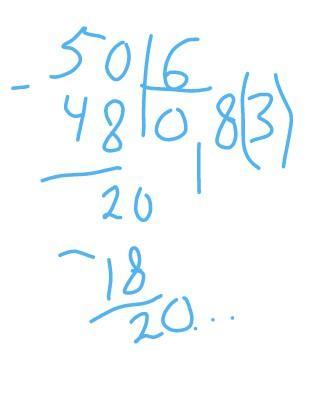 - 50 | 6
48 | 0,8(3)
20
- 18
20...